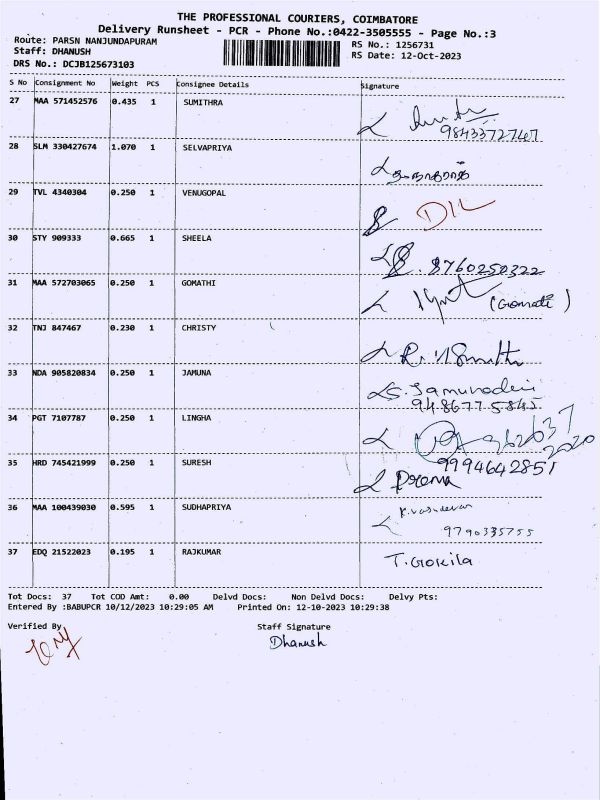 THE PROFESSIONAL COURIERS, COIMBATORE
Delivery Runsheet - PCR - Phone No.:0422-3505555 - Page No.:3
Route: PARSN NANJUNDAPURAM
RS No.: 1256731
Staff: DHANUSH
RS Date: 12-Oct-2023
DRS No.: DCJB125673103
S No Consignment No Weight PCS Consignee Details Signature
27 MAA 571452576 0.435 1 SUMITHRA
28 SLM 330427674 1.070 1 SELVAPRIYA
29 TVL 4340304 0.250 1 VENUGOPAL
30 STY 909333 0.665 1 SHEELA
8760250322
31 MAA 572703065 0.250 1 GOMATHI
(Gomati)
32 TNJ 847467 0.230 1 CHRISTY
33 NDA 905820834 0.250 1 JAMUNA
S. Jamunadevi
9486775845
34 PGT 7107787 0.250 1 LINGHA
9994642851
35 HRD 745421999 0.250 1 SURESH
Prema
36 MAA 100439030 0.595 1 SUDHAPRIYA
K. Vasudevan
9790335755
37 EDQ 21522023 0.195 1 RAJKUMAR
T. Gokila
Tot Docs: 37 Tot COD Amt: 0.00 Delvd Docs: Non Delvd Docs: Delvy Pts:
Entered By :BABUPCR 10/12/2023 10:29:05 AM Printed On: 12-10-2023 10:29:38
Verified By
Staff Signature
Dhanush